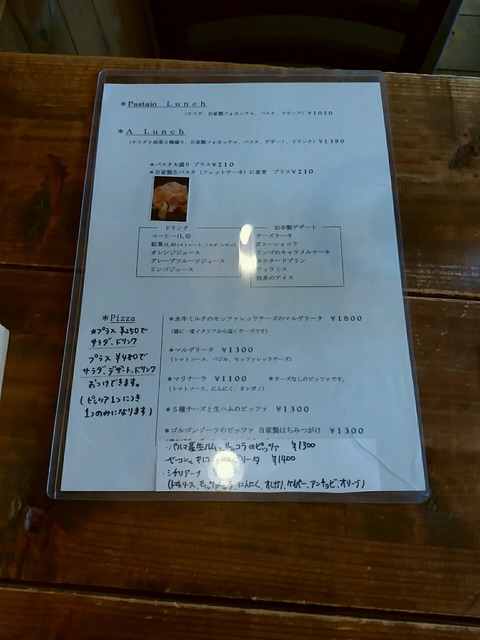 *Pastaio Lunch
(サラダ、自家製フォカッチャ、パスタ、ドリンク) ¥1020
*A Lunch
(サラダと前菜3種盛り、自家製フォカッチャ、パスタ、デザート、ドリンク) ¥1380
*パスタ大盛り プラス¥210
*自家製生パスタ (フェットチーネ) に変更 プラス¥210
ドリンク
コーヒー(I,H)
紅茶(I,H)(ストレート、ミルク、レモン)
オレンジジュース
グレープフルーツジュース
リンゴジュース
お手製デザート
チーズケーキ
ガトーショコラ
リンゴのキャラメルケーキ
カスタードプリン
ティラミス
抹茶のアイス
*Pizza
*プラス ¥250で
サラダ、ドリンク
プラス ¥480で
サラダ、デザート、ドリンク
おつけできます。
(ピッツァ1つにつき
1つのみになります)
*水牛ミルクのモッツァレッラチーズのマルゲリータ ¥1800
(週に一度イタリアから届くチーズです)
*マルゲリータ ¥1300
(トマトソース、バジル、モッツァレッラチーズ)
*マリナーラ ¥1100 *チーズなしのピッツァです。
(トマトソース、にんにく、オレガノ)
*5種チーズと生ハムのピッツァ ¥1300
*ゴルゴンゾーラのピッツァ 自家製はちみつがけ ¥1300
・パルマ産生ハムとルッコラのピッツァ ¥1300
・ベーコンとキノコ マルゲリータ ¥1400
・シチリアーナ
(トマトソース、モッツァレラ、にんにく、オレガノ、ケイパー、アンチョビ、オリーブ)